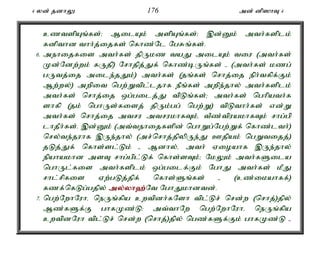 4 லன் தனாலு 176 அன் னிஸாவு 4
உணவளியுங்கள்; ஆடையும் அளியுங்கள்; இன்னும் அவர்களிடம்
கனிவான வார்த்தைகள் கொண்டே பேசுங்கள்.
6. அநாதைகளை அவர்கள் திருமண வயது அடையும் வரை (அவர்கள்
முன்னேற்றம் கருதி) சோதித்துக் கொண்டிருங்கள் - (அவர்கள் மணப்
பருவத்தை அடைந்ததும்) அவர்கள் (தங்கள் சொத்தை நிர்வகிக்கும்
ஆற்றல்) அறிவை பெற்றுவிட்டதாக நீங்கள் அறிந்தால் அவர்களிடம்
அவர்கள் சொத்தை ஒப்படைத்து விடுங்கள்; அவர்கள் பெரியவர்க
ளாகி (தம் பொருள்களைத் திரும்பப் பெற்று) விடுவார்கள் என்று
அவர்கள் சொத்தை அவசர அவசரமாகவும், வீண்விரயமாகவும் சாப்பி
டாதீர்கள். இன்னும் (அவ்வநாதைகளின் பொறுப்பேற்றுக் கொண்டவர்)
செல்வந்தராக இருந்தால் (அச்சொத்திலிருந்து ஊதியம் பெறுவதைத்)
தடுத்துக் கொள்ளட்டும் - ஆனால், அவர் ஏழையாக இருந்தால்
நியாயமான அளவு சாப்பிட்டுக் கொள்ளவும்; மேலும் அவர்களுடைய
பொருட்களை அவர்களிடம் ஒப்படைக்கும் போது அவர்கள் மீது
சாட்சிகளை ஏற்படுத்திக் கொள்ளுங்கள் - (உண்மையாகக்)
கணக்கெடுப்பதில் அல்லாஹ்வே போதுமானவன்.
7. பெற்றோரோ, நெருங்கிய உறவினர்களோ விட்டுச் சென்ற (சொத்)தில்
ஆண்களுக்கு பாகமுண்டு; அவ்வாறே பெற்றோரோ, நெருங்கிய
உறவினரோ விட்டுச் சென்ற (சொத்)தில் பெண்களுக்கும் பாகமுண்டு -